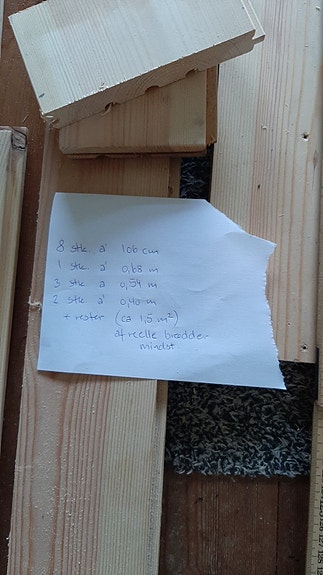 8 stk. á 106 cm
1 stk. á 0,68 m
3 stk á 0,54 m
2 stk á 0,40 m
+ rester (ca 1,5 m²)
af reelle brædder
mindst